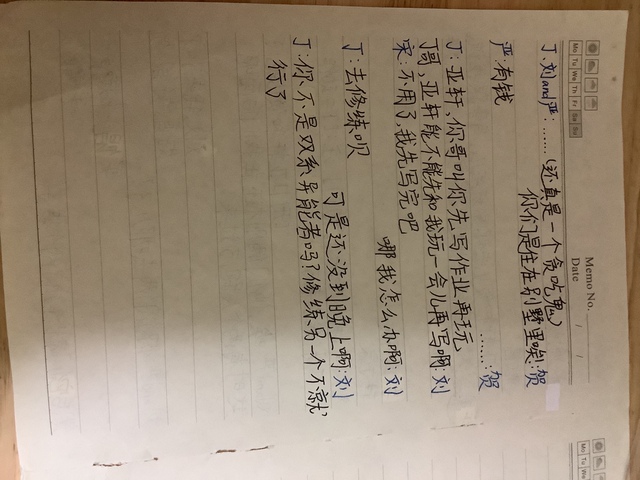 Memo No.
Date / /
Mo Tu We Th Fr Sa Su
丁.刘and严:……(还真是一个贪吃鬼)
你们是住在别墅里唉:贺
严:有钱
……:贺
丁:亚轩,你哥叫你先写作业再玩
丁哥,亚轩能不能先和我玩一会儿再写啊:刘
宋:不用了,我先写完吧
哪我怎么办啊:刘
丁:去修炼呗
可是还没到晚上啊:刘
丁:你不是双系异能者吗?修练另一个不就
行了
Mo Tu We